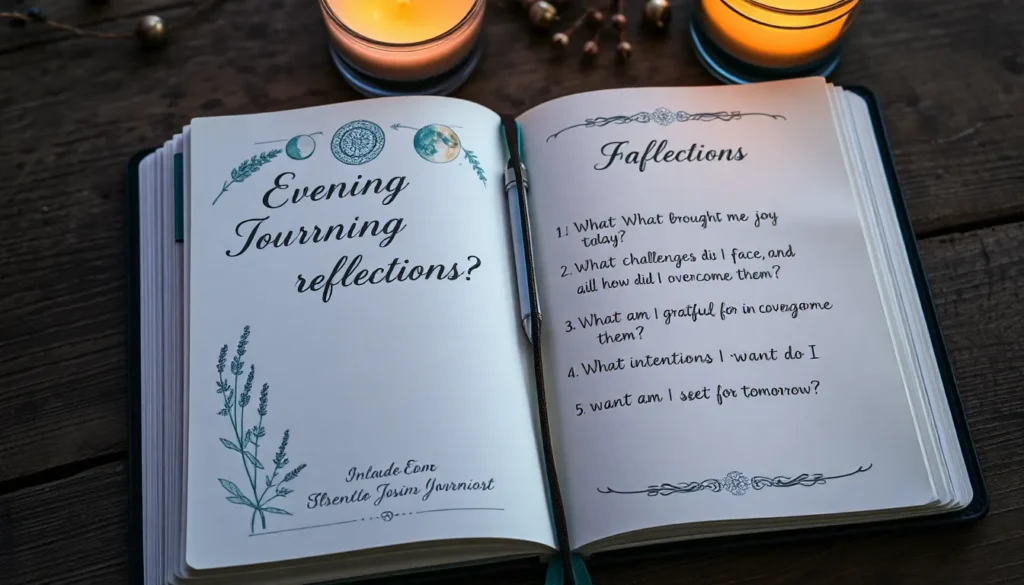 Evening
Tourrning
reflections?
Inlaide Eom
Stsentlo Josim Yarrniost
Faflections
1.! What What brought me joy
talay?
2. What challenges dis I face, and
aill how did I overcome them?
3. What am I gratful for in covegome
them?
4. What intentions I want do I
5. want am I seet for tomorrow?